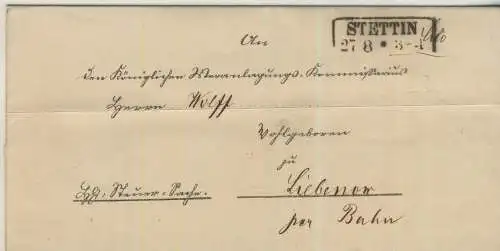 STETTIN
27 8 * 3-4
An
den Königlichen Veranlagungs-Kommissarius
Herrn Wolff
Wohlgeboren
zu
Liebenow
per Bahn
Steuer-Sache.